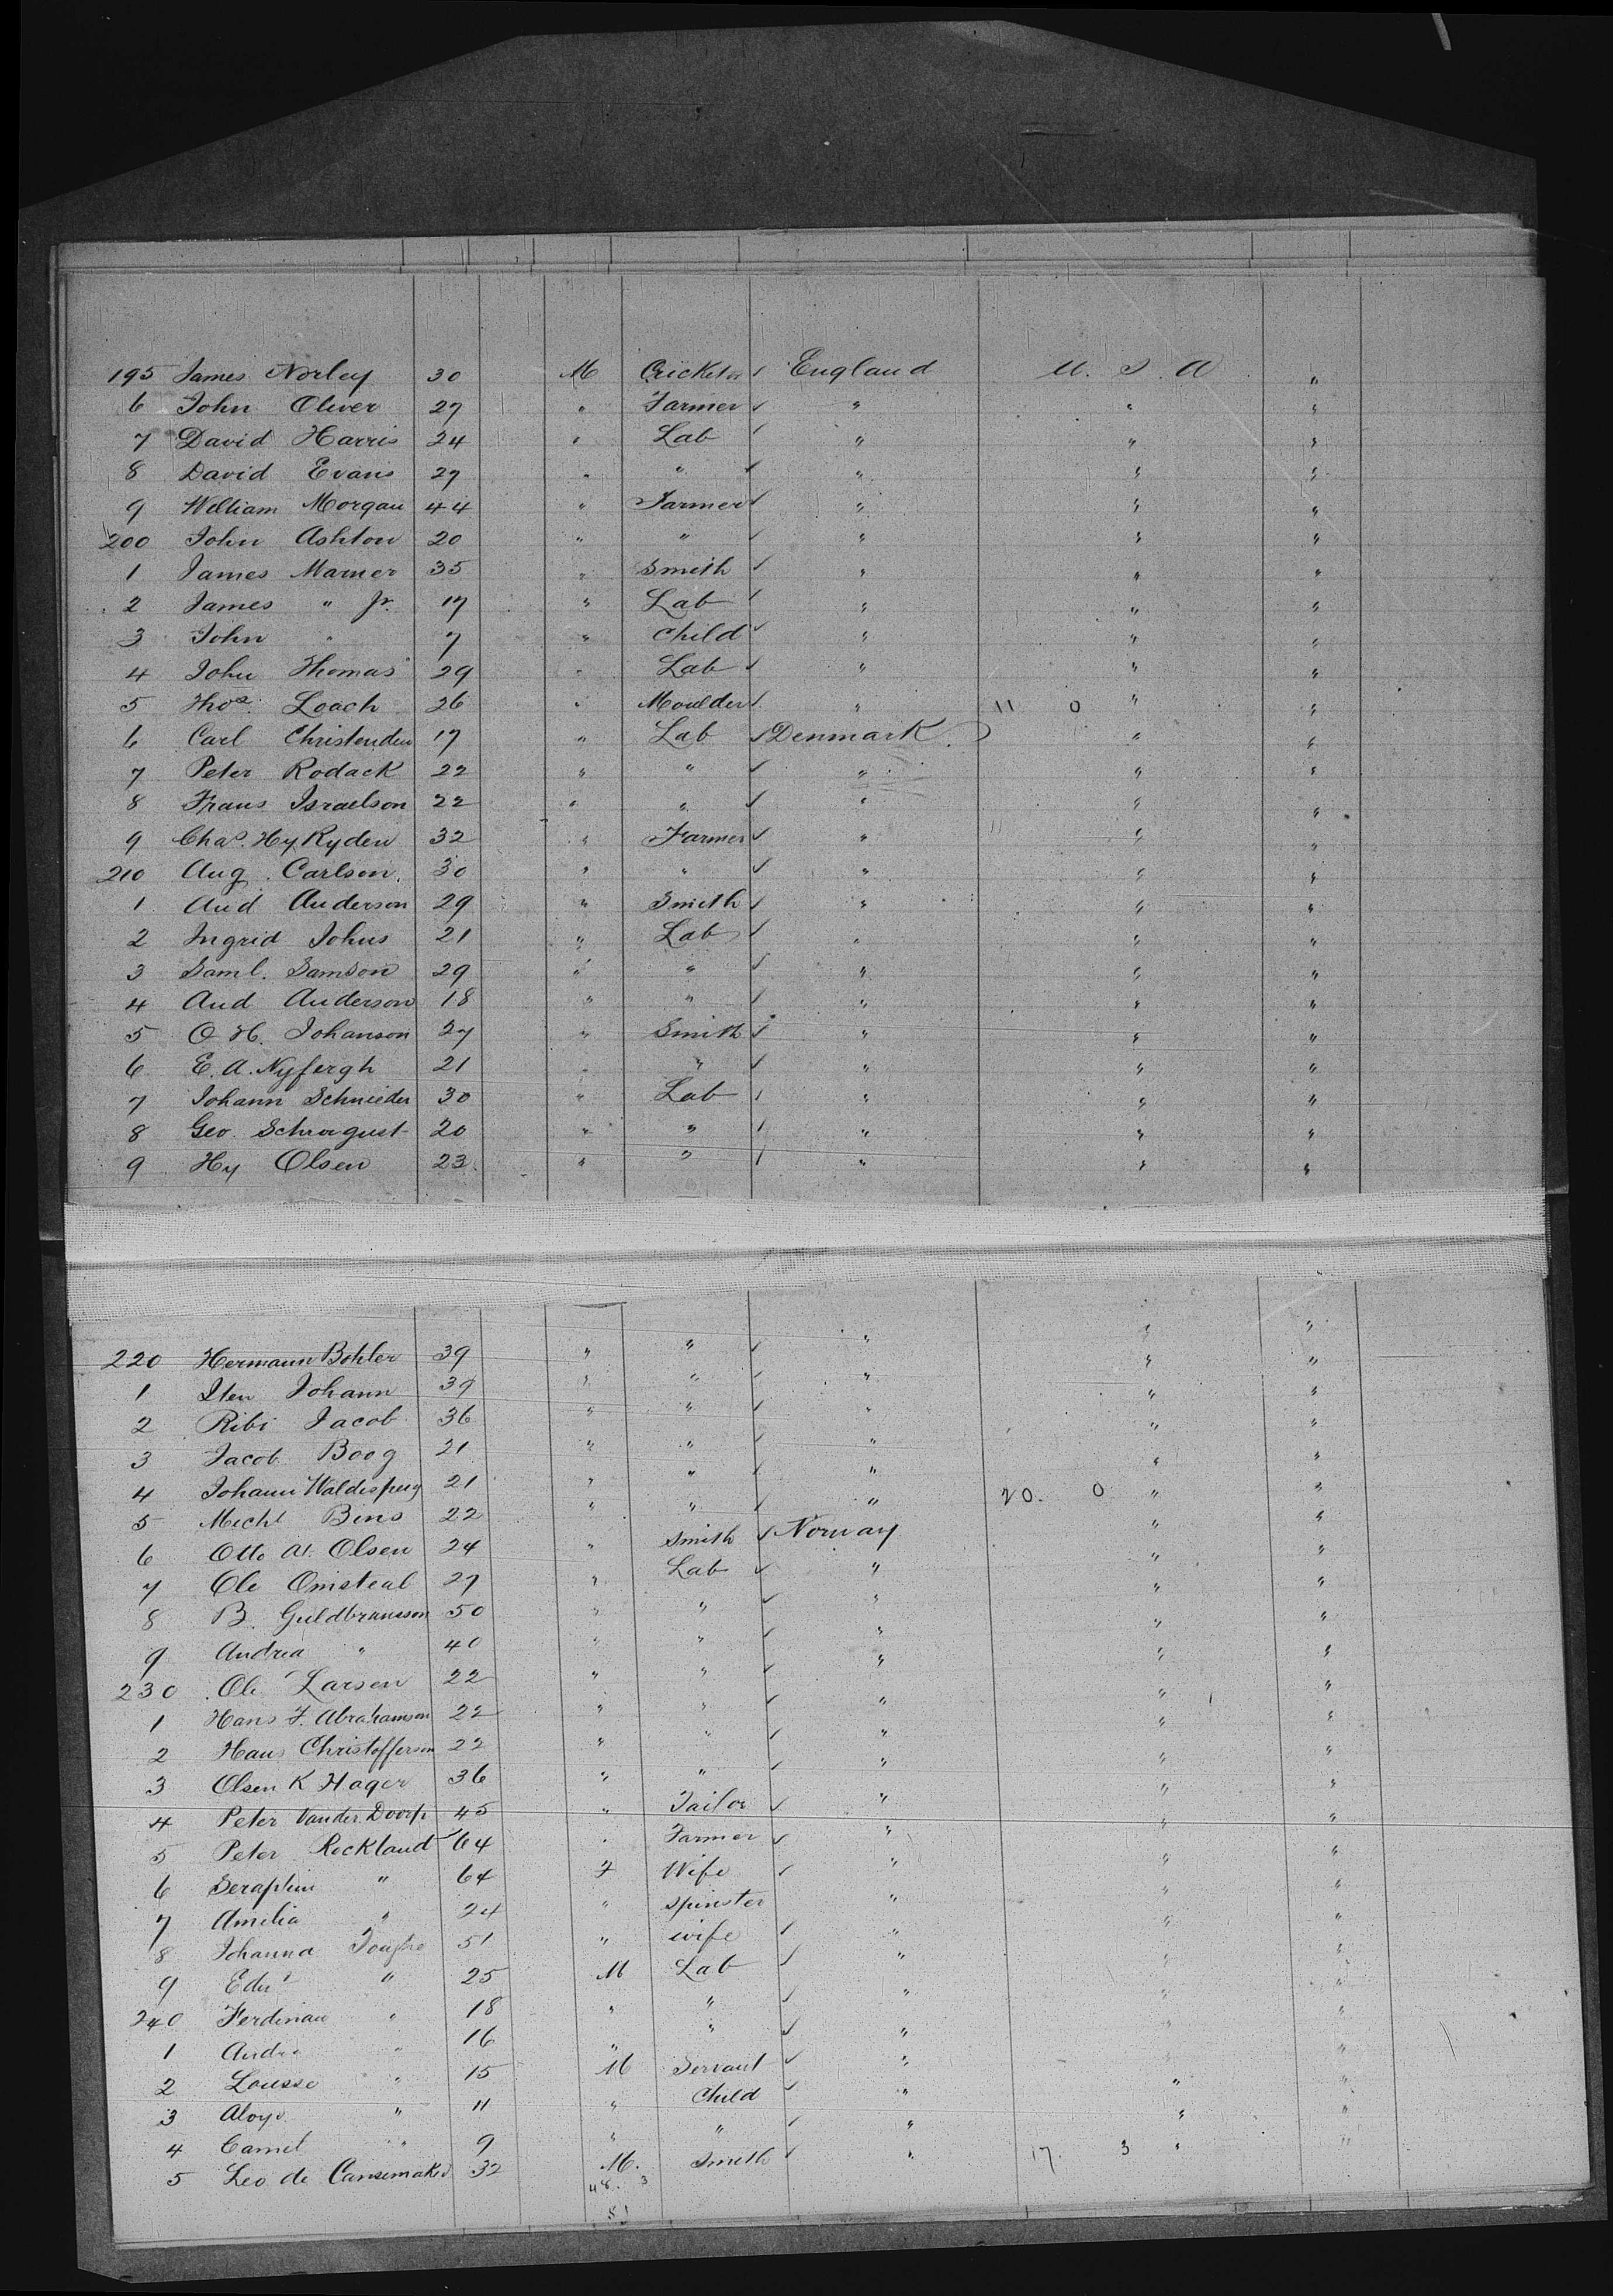 195 James Norley 30 M Cricketer ✓ England U. S. A "
6 John Oliver 27 " Farmer ✓ " " "
7 David Harris 24 " Lab ✓ " " "
8 David Evans 27 " " ✓ " " "
9 William Morgan 44 " Farmer ✓ " " "
200 John Ashton 20 " " ✓ " " "
1 James Marner 35 " Smith ✓ " " "
2 James " Jr. 17 " Lab ✓ " " "
3 John " 7 " Child ✓ " " "
4 John Thomas 29 " Lab ✓ " " "
5 Thos. Loach 26 " Moulder ✓ " 11 0 " "
6 Carl Christenden 17 " Lab ✓ Denmark " "
7 Peter Rodack 22 " " ✓ " " "
8 Frans Israelson 22 " " ✓ " " "
9 Chas. Hy Ryden 32 " Farmer ✓ " " "
210 Aug. Carlson 30 " " ✓ " " "
1 And Anderson 29 " Smith ✓ " " "
2 Ingrid Johns 21 " Lab ✓ " " "
3 Saml. Samson 29 " " ✓ " " "
4 And Anderson 18 " " ✓ " " "
5 O. H. Johanson 27 " Smith ✓ " " "
6 E. A. Nyfergh 21 " " ✓ " " "
7 Johann Schnieder 30 " Lab ✓ " " "
8 Geo. Schrougust 20 " " ✓ " " "
9 Hy Olsen 23 " " ✓ " " "
220 Hermann Bohler 39 " " ✓ " " "
1 Iten Johann 39 " " ✓ " " "
2 Ribi Jacob 36 " " ✓ " " "
3 Jacob Boog 21 " " ✓ " " "
4 Johann 21 " " ✓ " " "
5 Michl Bins 22 " " ✓ " 20. 0 " "
6 Otto A. Olsen 24 " Smith ✓ Norway " "
7 Ole Onisteal 27 " Lab ✓ " " "
8 B. Guldbransson 50 " " ✓ " " "
9 Andrea " 40 " " ✓ " " "
230 Ole Larsen 22 " " ✓ " " "
1 Hans F. Abrahamson 22 " " ✓ " " "
2 Hans Christofferson 22 " " ✓ " " "
3 Olsen K Hager 36 " " ✓ " " "
4 Peter Vander Doorp 45 " Tailor ✓ " " "
5 Peter Rockland 64 " Farmer ✓ " " "
6 Seraphin " 64 F Wife ✓ " " "
7 Amelia " 24 " Spinster " " "
8 Johanna 51 " wife ✓ " " "
9 Edwd " 25 M Lab ✓ " " "
240 Ferdinan " 18 " " ✓ " " "
1 Andre " 16 " " ✓ " " "
2 Lousse " 15 M Servant ✓ " " "
3 Aloys " 11 " Child ✓ " " "
4 Camel " 9 " " ✓ " " "
5 Leo de Cansemaker 32 M. Smith ✓ " 17. 3 " "
48. 3
51